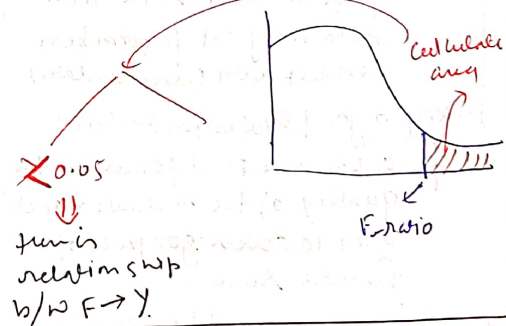 Calculate
area
< 0.05
F-ratio
there is
relationship
b/w F → Y.